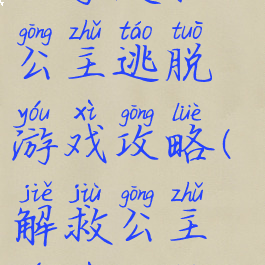 gōng zhǔ táo tuō
公主逃脱
yóu xì gōng lüè
游戏攻略(
jiě jiù gōng zhǔ
解救公主